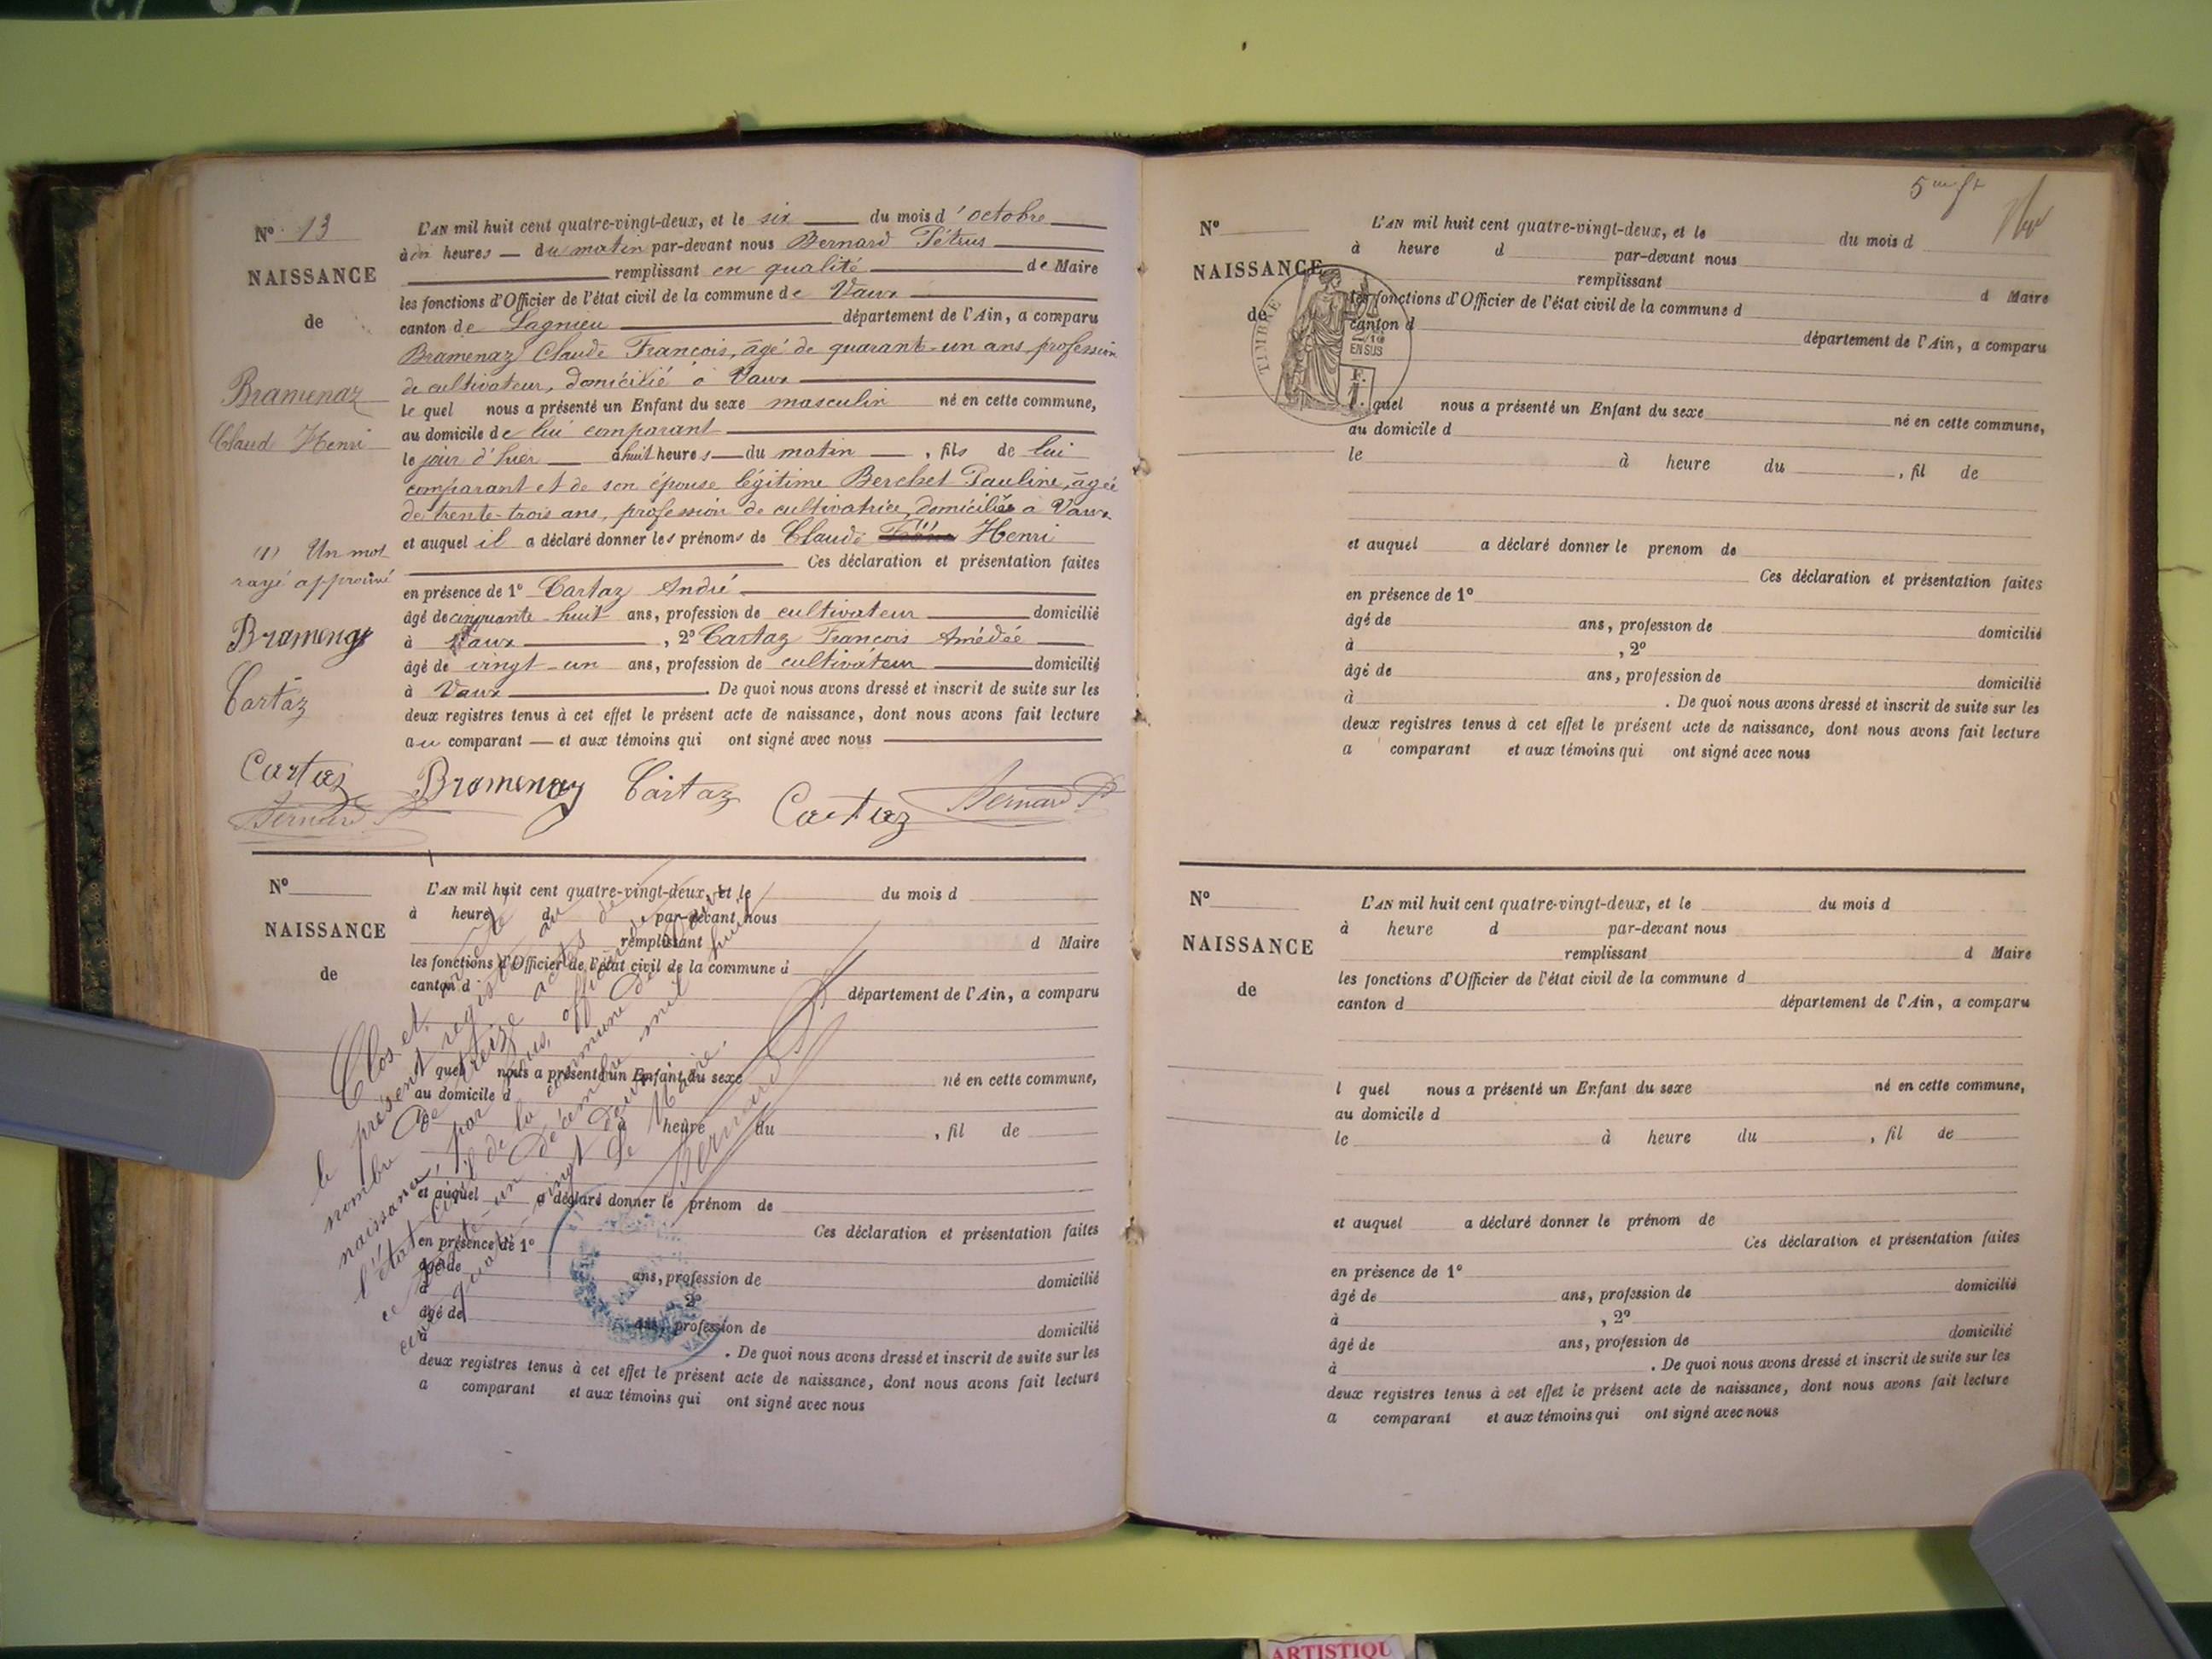 N° 13
NAISSANCE
de
Bramenaz
Claud Henri
(1) Un mot
rayé approuvé
Bramenaz
Cartaz
Cartaz
Bernard P
L'AN mil huit cent quatre-vingt-deux, et le six du mois d'octobre
à dix heures du matin par-devant nous Bernard Pétrus
remplissant en qualité de Maire
les fonctions d'Officier de l'état civil de la commune de Vaux
canton de Lagnieu département de l'Ain, a comparu
Bramenaz Claude François, âgé de quarante-un ans, profession
de cultivateur, domicilié à Vaux
le quel nous a présenté un Enfant du sexe masculin né en cette commune,
au domicile de lui comparant
le jour d'hier à huit heures du matin, fils de lui
comparant et de son épouse légitime Berchet Pauline, âgée
de trente-trois ans, profession de cultivatrice, domiciliée à Vaux
et auquel il a déclaré donner les prénoms de Claude Henri
Ces déclaration et présentation faites
en présence de 1° Cartaz André
âgé de cinquante-huit ans, profession de cultivateur domicilié
à Vaux, 2° Cartaz François Amédée
âgé de vingt-un ans, profession de cultivateur domicilié
à Vaux. De quoi nous avons dressé et inscrit de suite sur les
deux registres tenus à cet effet le présent acte de naissance, dont nous avons fait lecture
au comparant et aux témoins qui ont signé avec nous
Bramenaz Cartaz Cartaz Bernard P
N°
NAISSANCE
de
L'AN mil huit cent quatre-vingt-deux, et le du mois d
à heure d par-devant nous
remplissant d Maire
les fonctions d'Officier de l'état civil de la commune d
canton d département de l'Ain, a comparu
quel nous a présenté un Enfant du sexe né en cette commune,
au domicile d
à heure du , fil de
et auquel a déclaré donner le prénom de
Ces déclaration et présentation faites
en présence de 1°
âgé de ans, profession de domicilié
à , 2°
âgé de ans, profession de domicilié
à . De quoi nous avons dressé et inscrit de suite sur les
deux registres tenus à cet effet le présent acte de naissance, dont nous avons fait lecture
a comparant et aux témoins qui ont signé avec nous
Clos et arrêté
le présent registre au
nombre de treize actes de
naissance, par nous, officier de
l'état civil de la commune de Vaux
ce trente-un décembre mil huit
cent quatre-vingt deux.
Le Maire.
Bernard P
5me ft
N°
NAISSANCE
de
TIMBRE
2/10
EN SUS
F.
1.
L'AN mil huit cent quatre-vingt-deux, et le du mois d
à heure d par-devant nous
remplissant d Maire
les fonctions d'Officier de l'état civil de la commune d
canton d département de l'Ain, a comparu
quel nous a présenté un Enfant du sexe né en cette commune,
au domicile d
le à heure du , fil de
et auquel a déclaré donner le prenom de
Ces déclaration et présentation faites
en présence de 1°
âgé de ans, profession de domicilié
à , 2°
âgé de ans, profession de domicilié
à . De quoi nous avons dressé et inscrit de suite sur les
deux registres tenus à cet effet le présent acte de naissance, dont nous avons fait lecture
a comparant et aux témoins qui ont signé avec nous
N°
NAISSANCE
de
L'AN mil huit cent quatre-vingt-deux, et le du mois d
à heure d par-devant nous
remplissant d Maire
les fonctions d'Officier de l'état civil de la commune d
canton d département de l'Ain, a comparu
l quel nous a présenté un Enfant du sexe né en cette commune,
au domicile d
le à heure du , fil de
et auquel a déclaré donner le prénom de
Ces déclaration et présentation faites
en présence de 1°
âgé de ans, profession de domicilié
à , 2°
âgé de ans, profession de domicilié
à . De quoi nous avons dressé et inscrit de suite sur les
deux registres tenus à cet effet le présent acte de naissance, dont nous avons fait lecture
a comparant et aux témoins qui ont signé avec nous
ARTISTIQU